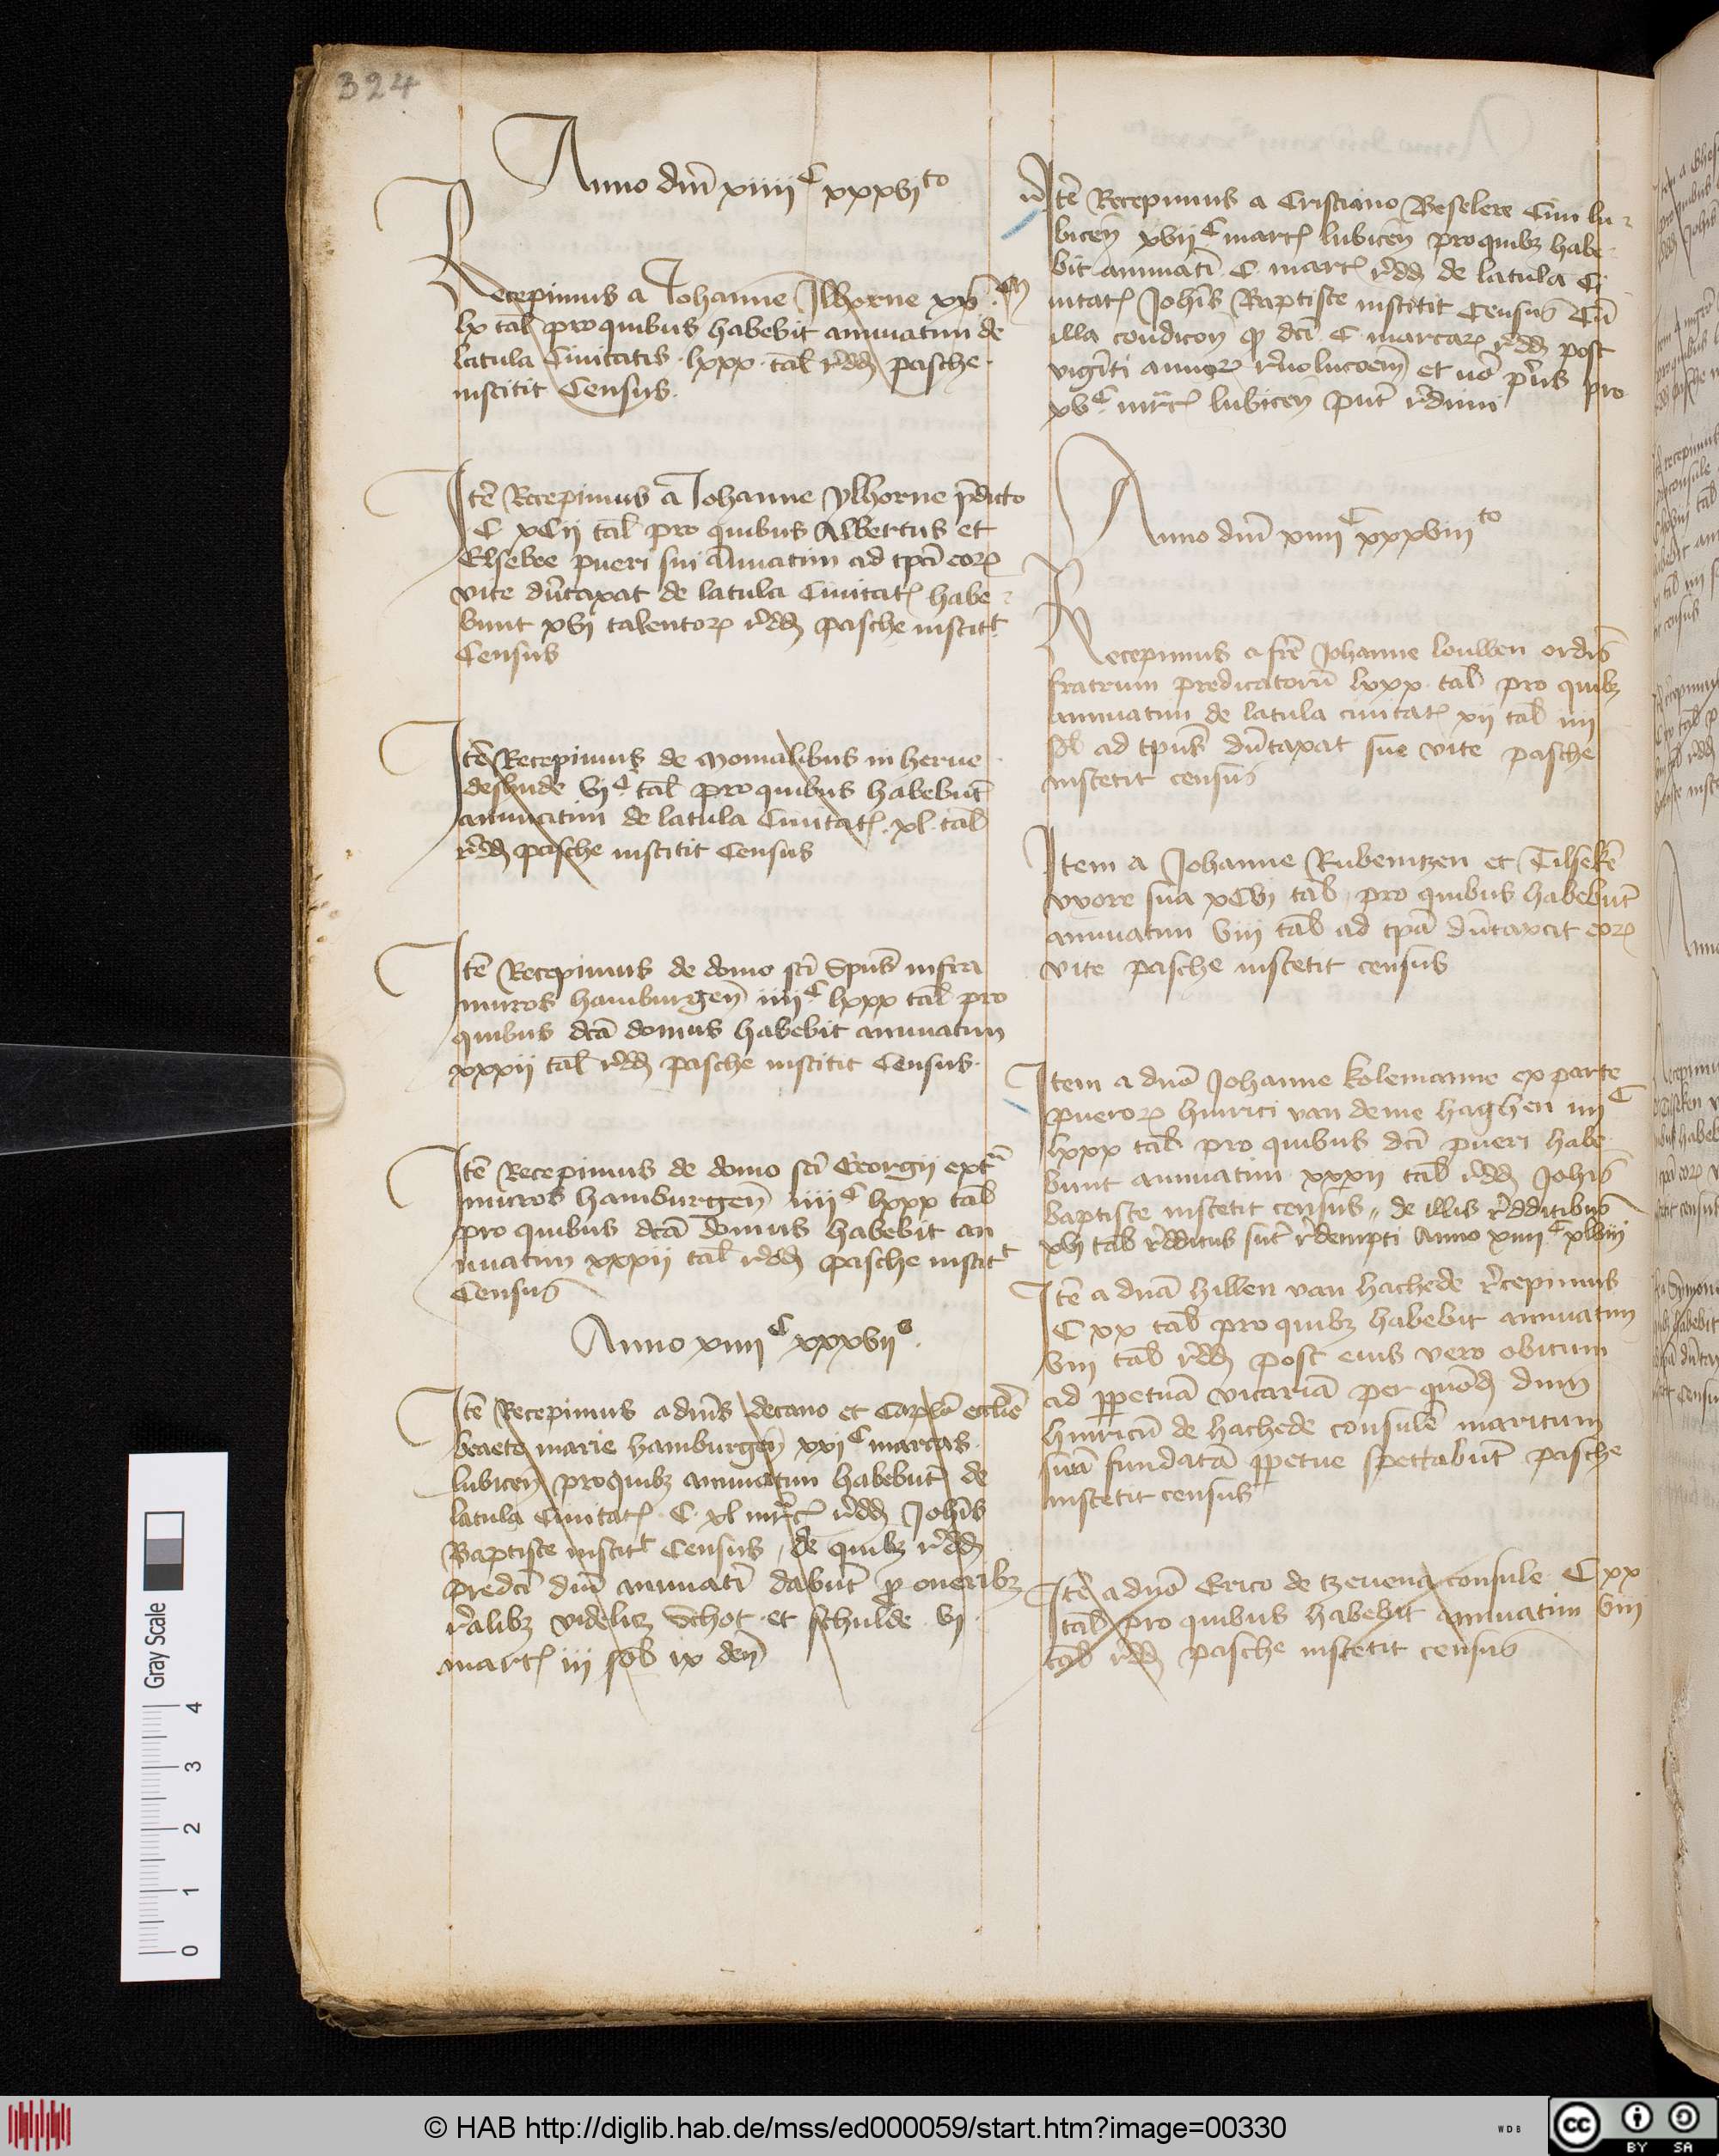 324
Anno dm̄ xiiii C xxxvi to
Recepimus a Johanne Ilhorne xv C
lx tal pro quibus habebit annuatim de
latula Civitatis · lxxx · tal rēdd pasche ·
institit Census ·
Itē Recepimus a Johanne ylhorne p̄dicto
C xCii tal pro quibus Albertus et
Elsebee pueri sui annuatim ad tpā eoꝝ
vite dūtaxat de latula Civitatꝭ habe
bunt xvi talentoꝝ rēdd pasche instit t
Census
Itē Recepimus de Monialibus in herue
deshude vi C tal pro quibus habebūt
annuatim de latula Civitatꝭ · xl · tal
rēdd pasche instititt Census
Itē Recepimus de domo sc̄i Sp̄us infra
muros hamburgen̄ iiii C lxxx tal pro
quibus dc̄a domus habebit annuatim
xxxii tal rēdd pasche instititt Census ·
Itē Recepimus de domo sc̄i Georgii extᵃ
muros hamburgen̄ iiii C lxxx tal
pro quibus dc̄a domus habebit an
nuatim xxxii tal rēdd pasche instit t
Census
Anno xiiii C xxxvii o ·
Itē Recepimus a dn̄is decano et Capl̄o ecclīe
beaete marie hamburgen̄ xxi C marcas
lubicen̄ pro quibꝫ annuatim habebūt de
latula Civitatꝭ · C · xl mr̄cꝭ rēdd Joh̄is
Baptiste instit t Census , de quibꝫ rēdd
predc̄i dn̄i annuatī dabūt ꝓ oneribꝫ
rēalibꝫ videliꝫ Schot · et schulde · vi ·
martꝭ iii sol ix den̄
Itē Recepimus a Cristiano Beselere Civi lu
bicen̄ xvii C martꝭ lubicen̄ pro quibꝫ habe
bit annuatī · C · martꝭ rēdd de latula Ci
uitatꝭ Joh̄is Baptiste institit Census Cū
illa condicōn ꝙ dc̄i · C · marcaꝝ rēdd post
vigīti annoꝝ rēuolucōem et nō p̄us pro
xv C mr̄cꝭ lubicen̄ put̄ rēdimi
Anno dm̄ xiiii C xxxviii to
Recepimus a fr̄e Johanne louwen ordīs
fratrum predicatorū lxxx · tal pro quibꝫ
annuatim de latula civitatꝭ xii tal iiii
sol ad tp̄us dūtaxat sue vite pasche
instetit census
Item a Johanne Rubenitzen et Tilsekē
vxore sua xCvi tal pro quibus habebūt
annuatim viii tal ad tpā dūtaxat eoꝝ
vite pasche instetit census
Item a dn̄o Johanne kolemanne ex parte
pueroꝝ hinrici van deme haghen iiii C
lxxx tal pro quibus dc̄i pueri habe
bunt annuatim xxxii tal rēdd Joh̄is
baptiste instetit census ,, de illis rēdditibus
xvi tal rēdditus sūt rēdempti Anno xiiii C xlviii
Itē a dn̄a hillen van hachede rēcepimus
C xx tal pro quibꝫ habebit annuatim
viii tal rēdd post eius vero obitum
ad ꝑpetuā vicariā per quōd dnm̄
hinricū de hachede consulē maritum
suū fundatā ꝑpetue spettabūt pasche
instetit census
Itē a dn̄o Erico de tzeuena consule C xx
tal pro quibus habebit annuatim viii
tal rēdd pasche instetit census
Gray Scale
4
3
2
1
0
© HAB http://diglib.hab.de/mss/ed000059/start.htm?image=00330
WDB
cc
BY
SA